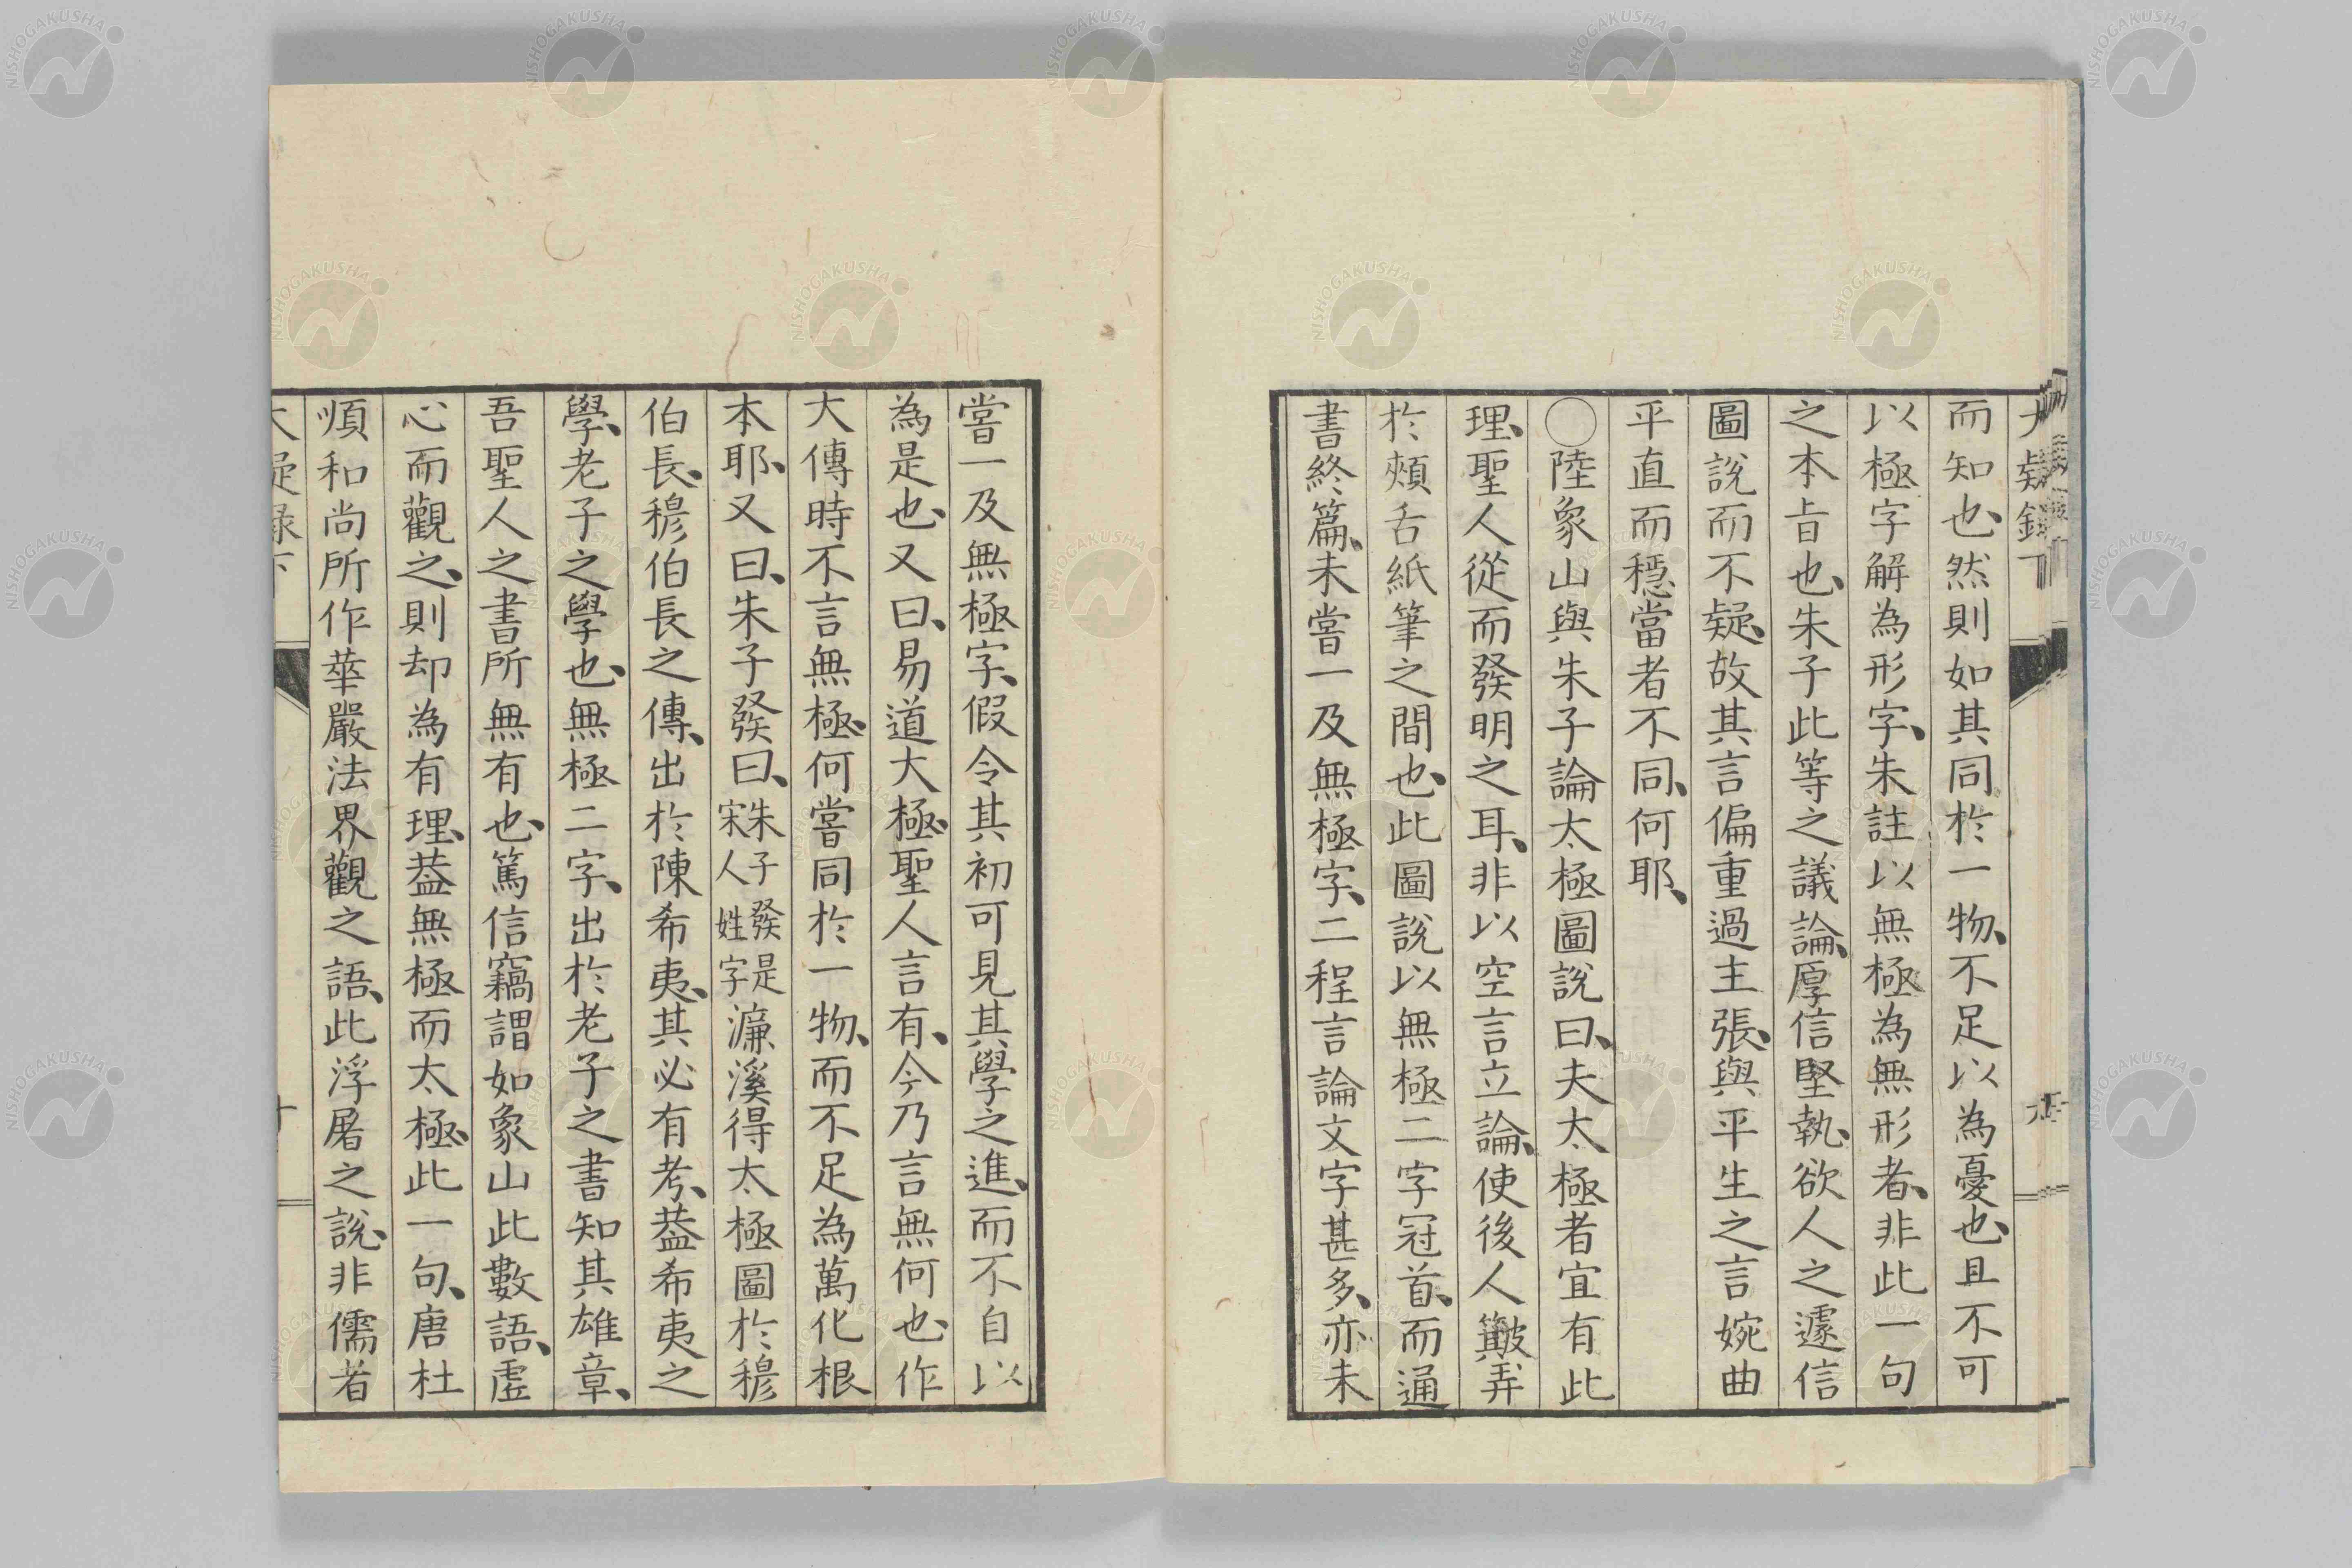 而知也、然則如其同於一物、不足以為憂也、且不可
以極字解為形字、朱註以無極為無形者、非此一句
之本旨也、朱子此等之議論、厚信堅執、欲人之遽信
圖說而不疑、故其言偏重過主張、與平生之言婉曲
平直而穩當者不同、何耶、
〇陸象山與朱子論太極圖說曰、夫太極者宜有此
理、聖人從而發明之耳、非以空言立論、使後人簸弄
於頰舌紙筆之間也、此圖說以無極二字冠首、而通
書終篇、未嘗一及無極字、二程言論文字甚多、亦未
嘗一及無極字、假令其初可見其學之進、而不自以
為是也、又曰、易道大極、聖人言有、今乃言無何也、作
大傳時不言無極、何嘗同於一物、而不足為萬化根
本耶、又曰、朱子發曰、朱子發是宋人姓字濂溪得太極圖於穆
伯長、穆伯長之傳、出於陳希夷、其必有考、葢希夷之
學、老子之學也、無極二字、出於老子之書知其雄章、
吾聖人之書所無有也、篤信竊謂如象山此數語、虛
心而觀之、則却為有理、葢無極而太極、此一句、唐杜
順和尚所作華嚴法界觀之語、此浮屠之說、非儒者
NISHOGAKUSHA